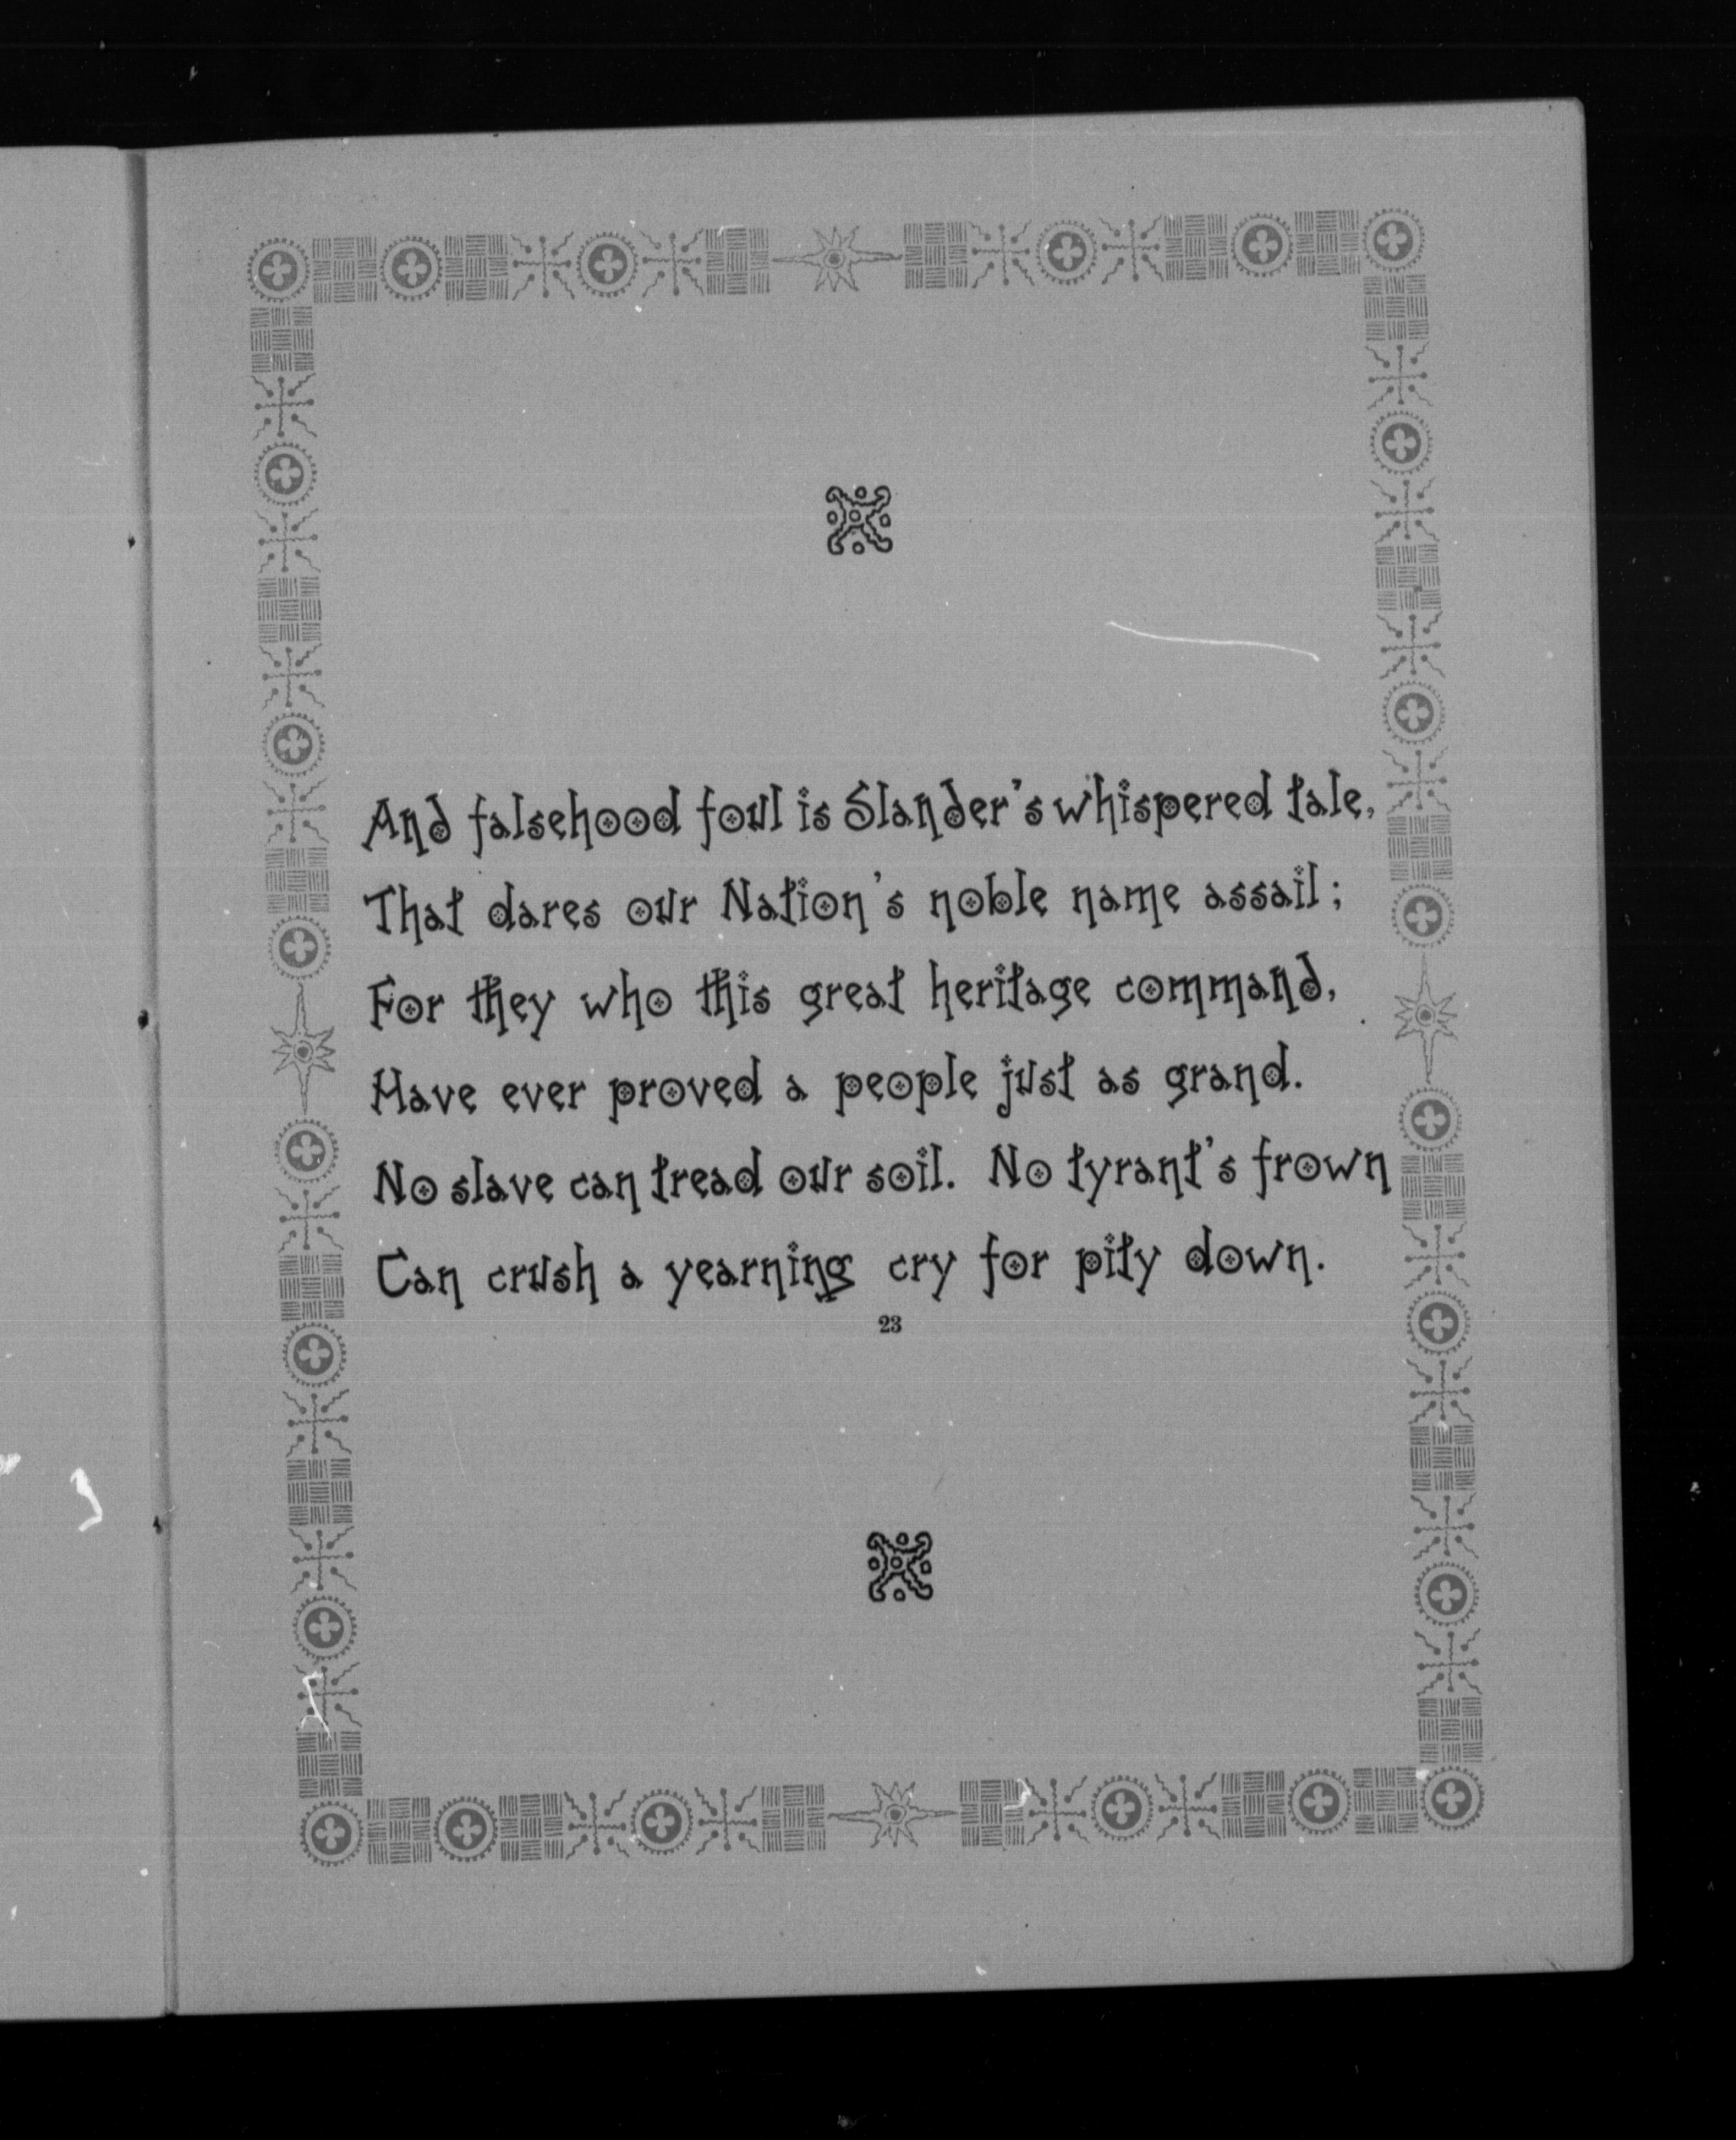 And falsehood foul is Slander's whispered tale,
That dares our Nation's noble name assail;
For they who this great heritage command,
Have ever proved a people just as grand.
No slave can tread our soil. No tyrant's frown
Can crush a yearning cry for pity down.
23